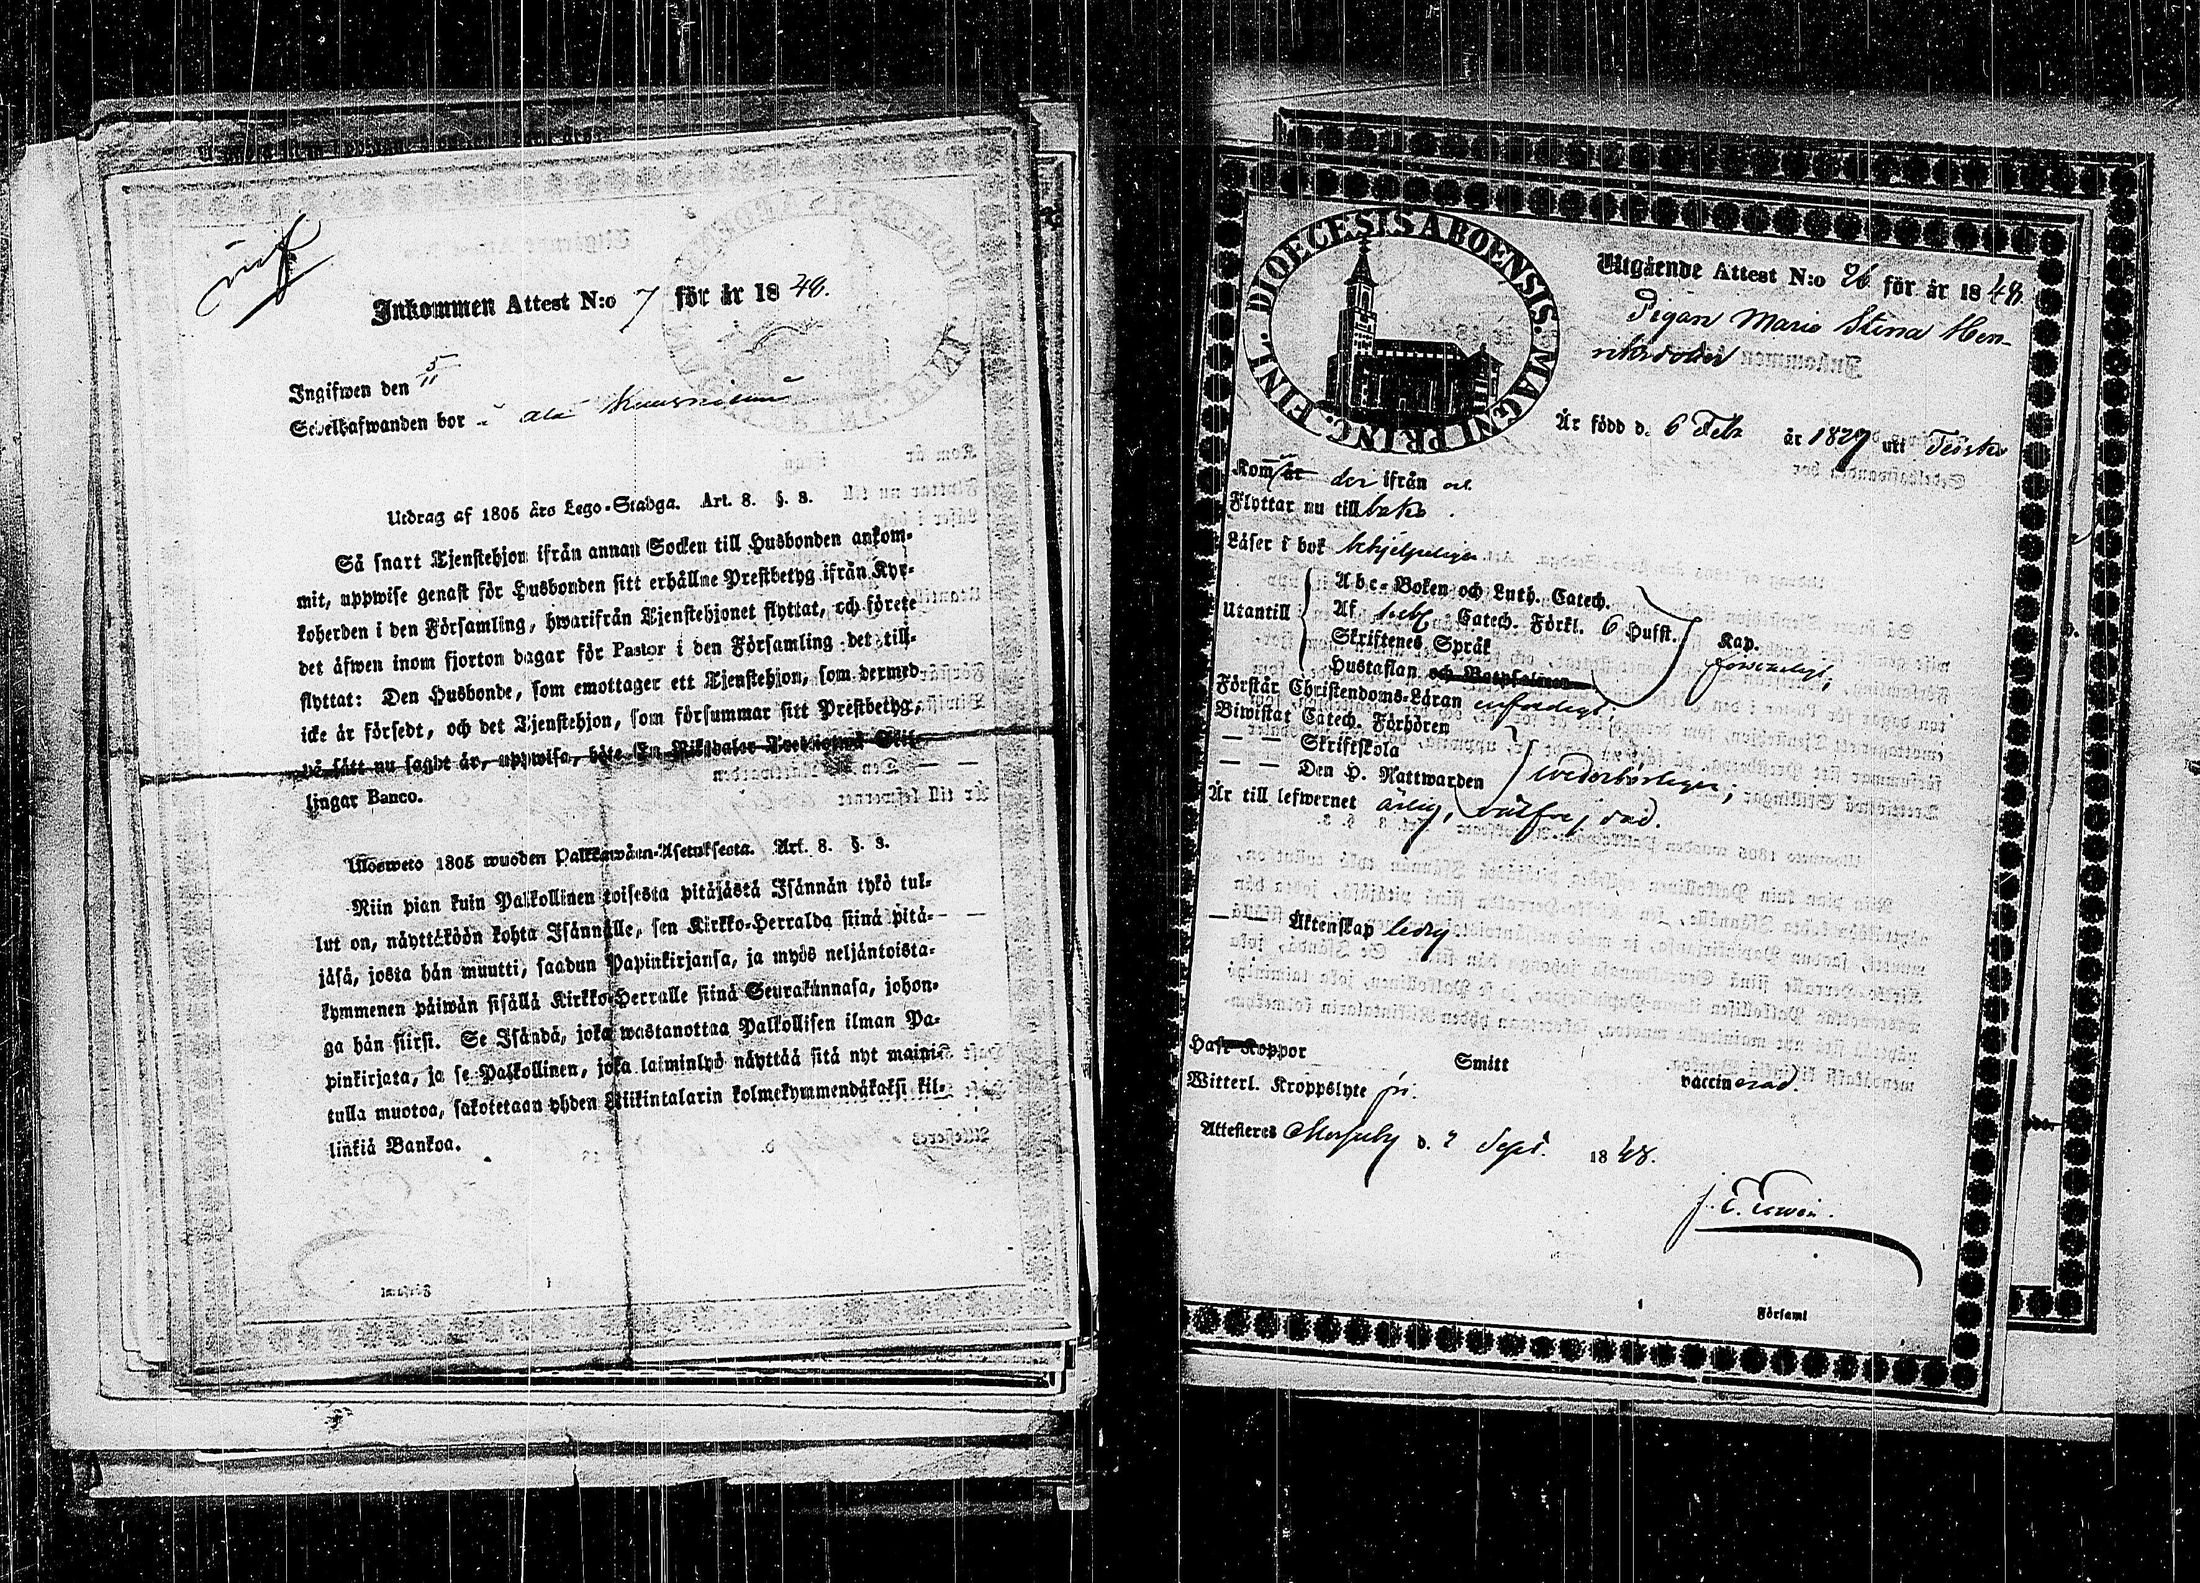 Inkommen Attest N:o 7 för år 1848.
Ingifwen den 5/11
Sedelhafwanden bor i Ala
Utdrag af 1805 års Lego-Stadga. Art. 8. §. 3.
Så snart Tjenstehjon ifrån annan Socken till Husbonden ankom-
mit, uppwise genast för Husbonden sitt erhållne Prestbetyg ifrån Kyr-
koherden i den Församling, hwarifrån Tjenstehjonet flyttat, och förete
det äfwen inom fjorton dagar för Pastor i den Församling det till-
flyttat: Den Husbonde, som emottager ett Tjenstehjon, som dermed
icke är försedt, och det Tjenstehjon, som försummar sitt Prestbetyg,
på sätt nu sagdt är, uppwisa, böte En Riksdaler Trettiotwå Skil-
lingar Banco.
Ulosweto 1805 wuoden Palkkawäen-Asetuksesta. Art. 8. §. 3.
Niin pian kuin Palkollinen toisesta pitäjästä Isännän tykö tul-
lut on, näyttäköön kohta Isännälle, sen Kirkko-Herralda siinä pitä-
jäsä, josta hän muutti, saadun Papinkirjansa, ja myös neljäntoista-
kymmenen päiwän sisällä Kirkko-Herralle siinä Seurakunnasa, johon-
ga hän siirsi. Se Isändä, joka wastanottaa Palkollisen ilman Pa-
pinkirjata, ja se Palkollinen, joka laiminlyö näyttää sitä nyt maini-
tulla muotoa, sakotetaan yhden Riikintalarin kolmekymmendäkaksi kil-
linkiä Bankoa.
DIOECESIS ABOENSIS. MAGNI PRINC. FINL.
Utgående Attest N:o 26 för år 1848
Pigan Maria Stina Hen-
riksdotter
Är född d. 6 Febr år 1829 uti
Kom år der ifrån
Flyttar nu tillbaka.
Läser i bok behjelpeligen
Utantill
Abc-Boken och Luth. Catech.
Af Catech. Förkl. 6 Hufst. Kap.
Skriftenes Språk
Hustaflan och Botpsalmen
förswarligt;
Förstår Christendoms-Läran enfaldigt
Biwistat Catech. Förhören
— — Skriftskola
— — Den H. Nattwarden
wederbörligen;
Är till lefwernet ärlig, wälfrejdad.
— — Äktenskap ledig
Haft Koppor Smitt vaccinerad.
Witterl. Kroppslyte fri.
Attesteras d. 2 Sept. 1848.
Församl